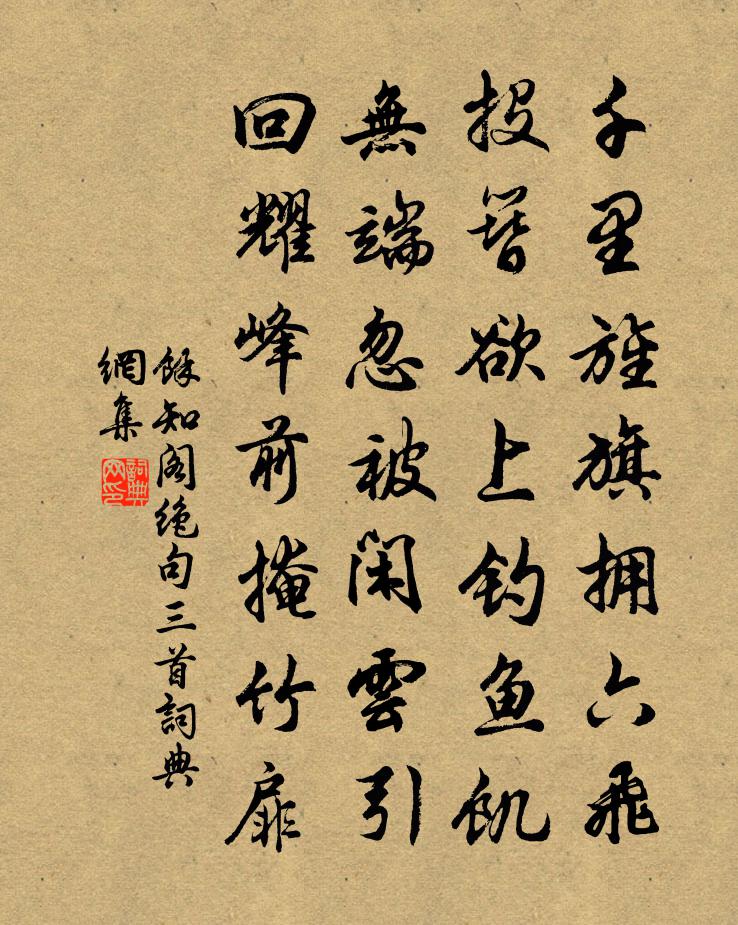 千里旌旗拥六飛
投簪欲上釣魚飢
無端忽被閑雲引
回耀峰前掩竹扉
餘知阁绝句三首詞典
網集
詞典
网印